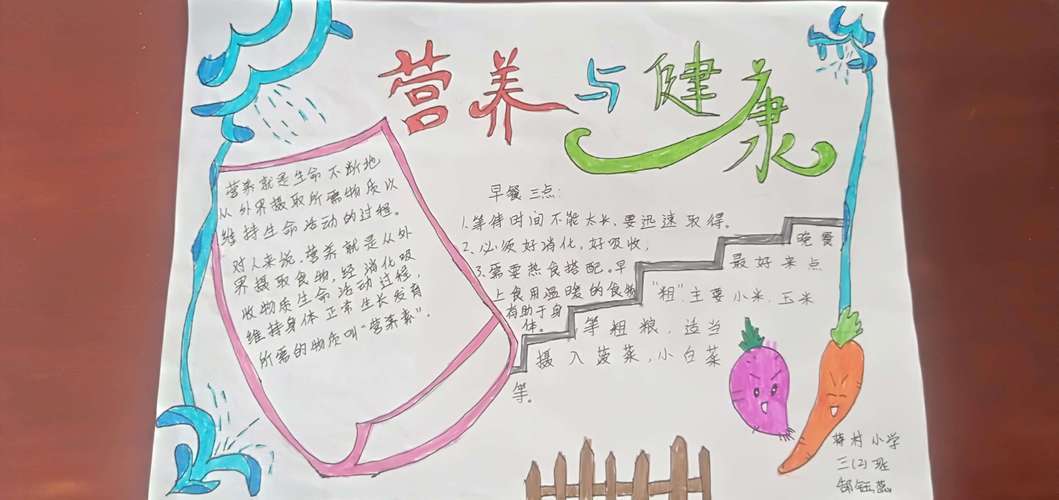 营养与健康
营养就是生命不断地
从外界摄取所需物质以
维持生命活动的过程。
对人来说,营养就是从外
界摄取食物,经消化吸
收物质生命活动过程,
维持身体正常生长发育
所需的物质叫“营养素”.
早餐三点:
1.等待时间不能太长,要迅速取得。
2.必须好消化,好吸收,
3.需要热食搭配。早
上食用温暖的食物
有助于身
体。
晚餐
最好来点
“粗”主要小米、玉米
等粗粮,适当
摄入菠菜,小白菜
等。
村小学
三(2)班